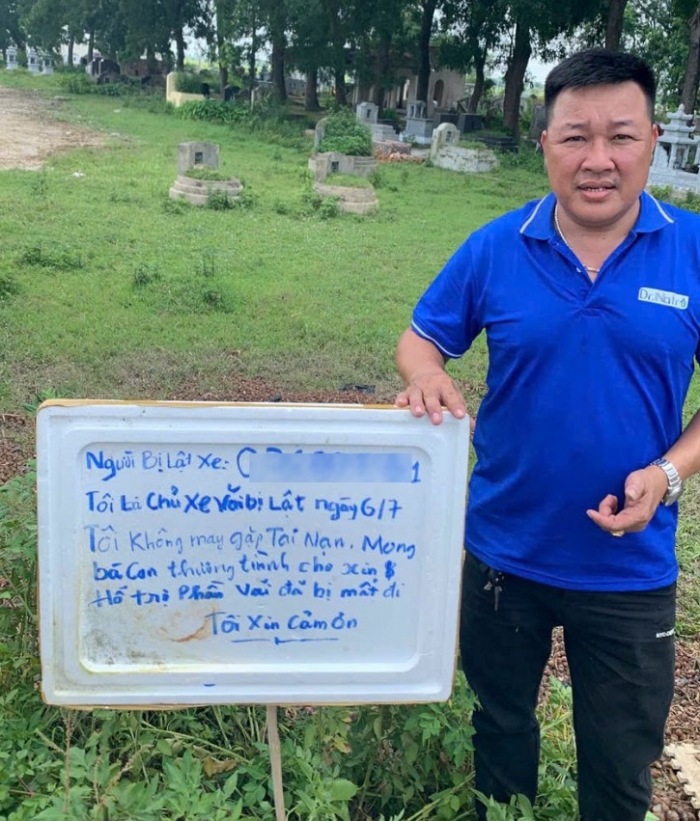 Người Bị Lật Xe: 1
Tôi Là Chủ Xe Vải bị Lật ngày 6/7
Tôi Không may gặp Tai Nạn. Mong
bà Con thương tình cho xin $
Hổ trợ Phần Vải đã bị mất đi
Tôi Xin Cảm Ơn
Dr.Natro